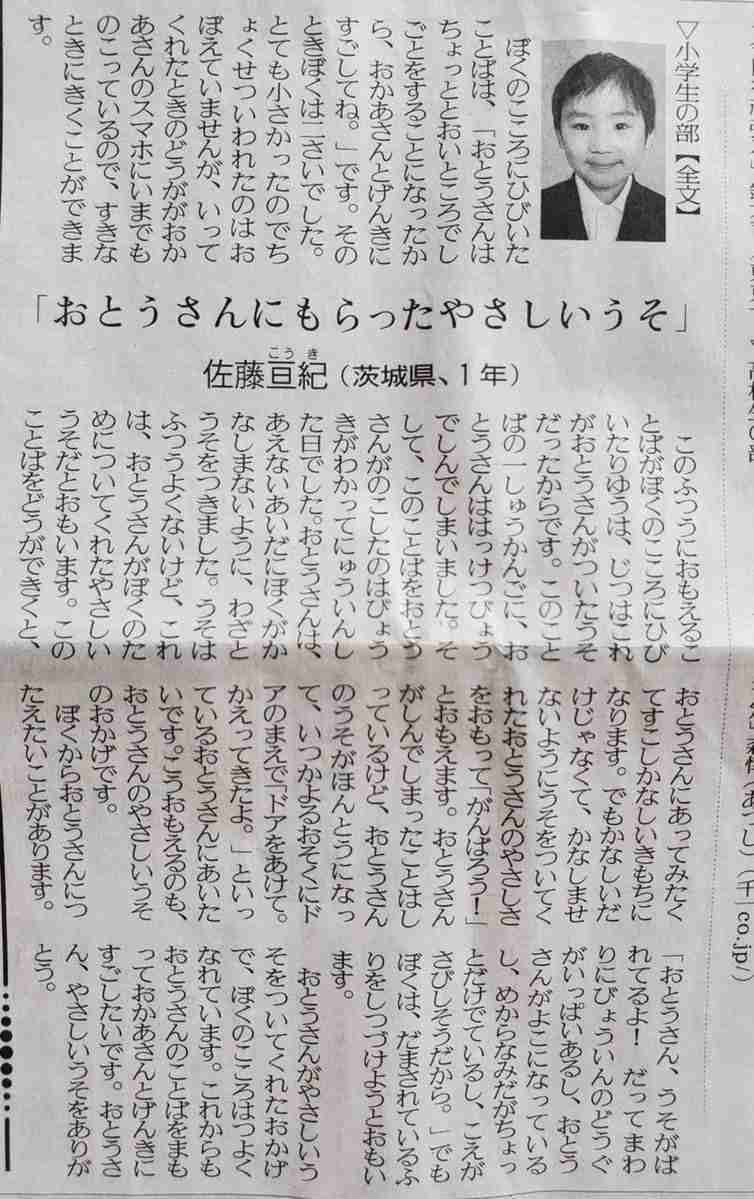 ▽小学生の部【全文】
ぼくのこころにひびいた
ことばは、「おとうさんは
ちょっととおいところでし
ごとをすることになったか
ら、おかあさんとげんきに
すごしてね。」です。その
ときぼくは二さいでした。
とても小さかったのでち
ょくせついわれたのはお
ぼえていませんが、いって
くれたときのどうががおか
あさんのスマホにいまでも
のこっているので、すきな
ときにきくことができま
す。
「おとうさんにもらったやさしいうそ」
こうき
佐藤亘紀（茨城県、1年）
このふつうにおもえるこ
とばがぼくのこころにひび
いたりゆうは、じつはこれ
がおとうさんがついたうそ
だったからです。このこと
ばの一しゅうかんごに、お
とうさんははっけつびょう
でしんでしまいました。そ
して、このことばをおとう
さんがのこしたのはびょう
きがわかってにゅういんし
た日でした。おとうさんは、
あえないあいだにぼくがか
なしまないように、わざと
うそをつきました。うそは
ふつうよくないけど、これ
は、おとうさんがぼくのた
めについてくれたやさしい
うそだとおもいます。この
ことばをどうができくと、
おとうさんにあってみたく
てすこしかなしいきもちに
なります。でもかなしいだ
けじゃなくて、かなしませ
ないようにうそをついてく
れたおとうさんのやさしさ
をおもって「がんばろう！」
とおもえます。おとうさん
がしんでしまったことはし
っているけど、おとうさん
のうそがほんとうになっ
て、いつかよるおそくにド
アのまえで「ドアをあけて。
かえってきたよ。」といっ
ているおとうさんにあいた
いです。こうおもえるのも、
おとうさんのやさしいうそ
のおかげです。
ぼくからおとうさんにつ
たえたいことがあります。
「おとうさん、うそがば
れてるよ！　だってまわ
りにびょういんのどうぐ
がいっぱいあるし、おとう
さんがよこになっている
し、めからなみだがちょっ
とだけでているし、こえが
さびしそうだから。」でも
ぼくは、だまされているふ
りをしつづけようとおもい
ます。
おとうさんがやさしいう
そをついてくれたおかげ
で、ぼくのこころはつよく
なれています。これからも
おとうさんのことばをまも
っておかあさんとげんきに
すごしたいです。おとうさ
ん、やさしいうそをありが
とう。
co.jp/）